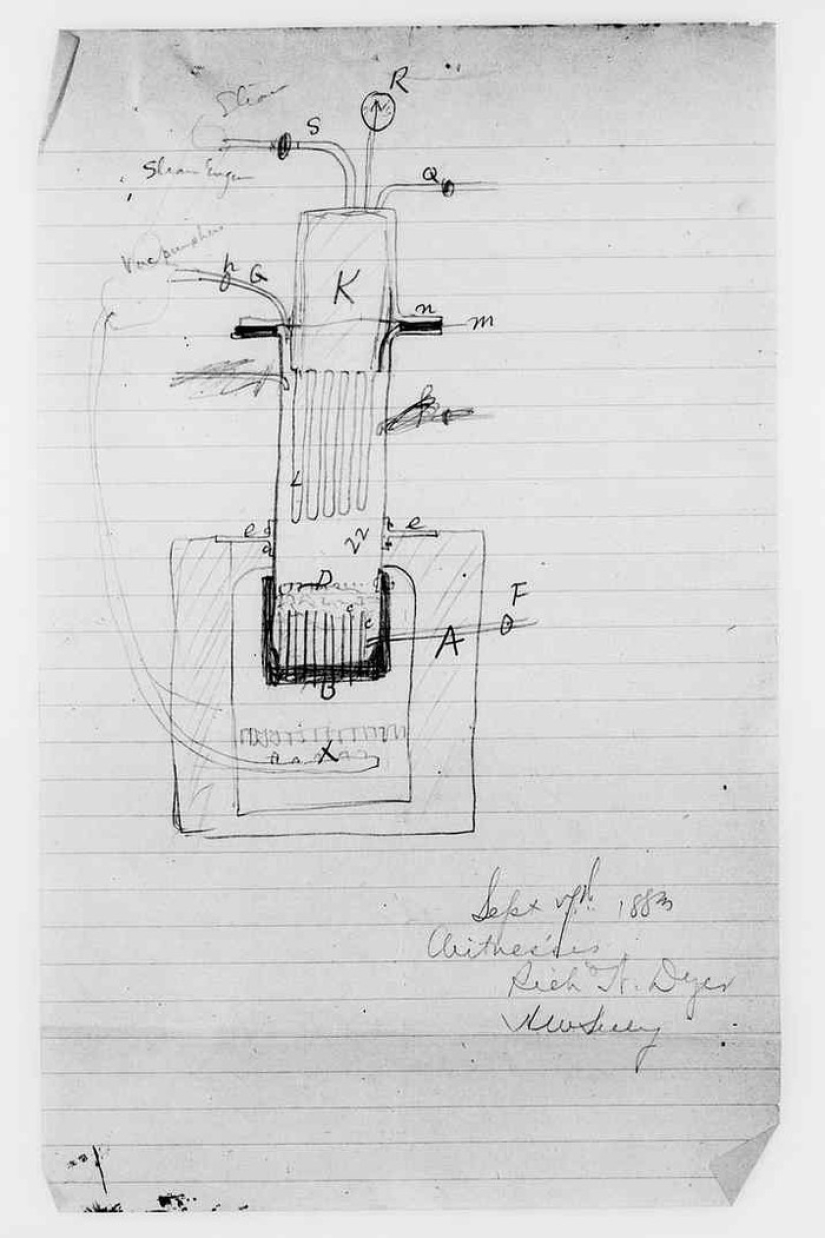 R
Steam
S
Steam Engine
Q
h G
K
n
m
L
e
e
22
D
c
c
F
A
B
X
Sept 1883
Witnesses
Rich N. Dyer
H W Seely